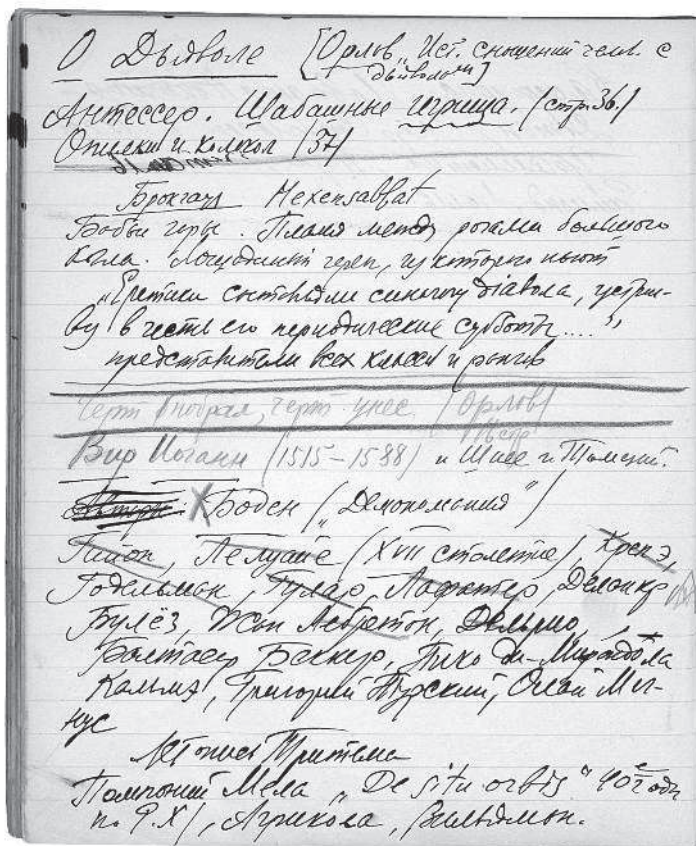 О Дьяволе [Орлов „Ист. сношений челов. с
дьяволом]
Антессер. Шабашные игрища. (стр. 36.)
Опилки и колокол (37)
Брокгауз Hexensabbat
Бабьи горы. Пламя между рогами большого
козла. Лошадиный череп, из которого пьют
„Еретики составляли синагогу діавола, устраи-
ву в честь его периодические субботы....“,
представители всех классов и рангов
Черт побрал, черт унес. (Орлов)
Вир Иоганн (1515–1588) и Шпее и Томазий.
Боден („Демономания“)
Гийон, Ле Луайе (XVII столетие), Креспэ,
Годельман, Гулар, Лафатер, Деланкр
Булёз, Жан Лебретон, Дельрио,
Балтасар Беккер, Пико ди-Мирандола
Кальмэ, Григорий Турский, Олай Маг-
нус
Летопись Тритема
Помпоний Мела „De situ orbis“ 40е годы
по Р.Х), Агрикола,